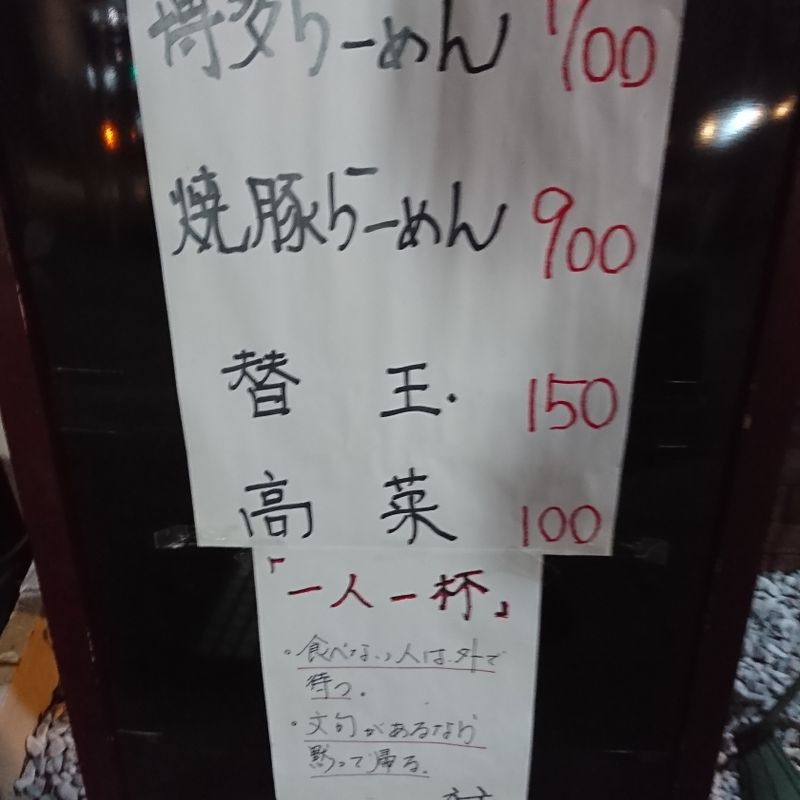 博多らーめん 700
焼豚らーめん 900
替 玉 150
高 菜 100
「一人一杯」
・食べない人は、外で
待つ。
・文句があるなら
黙って帰る。